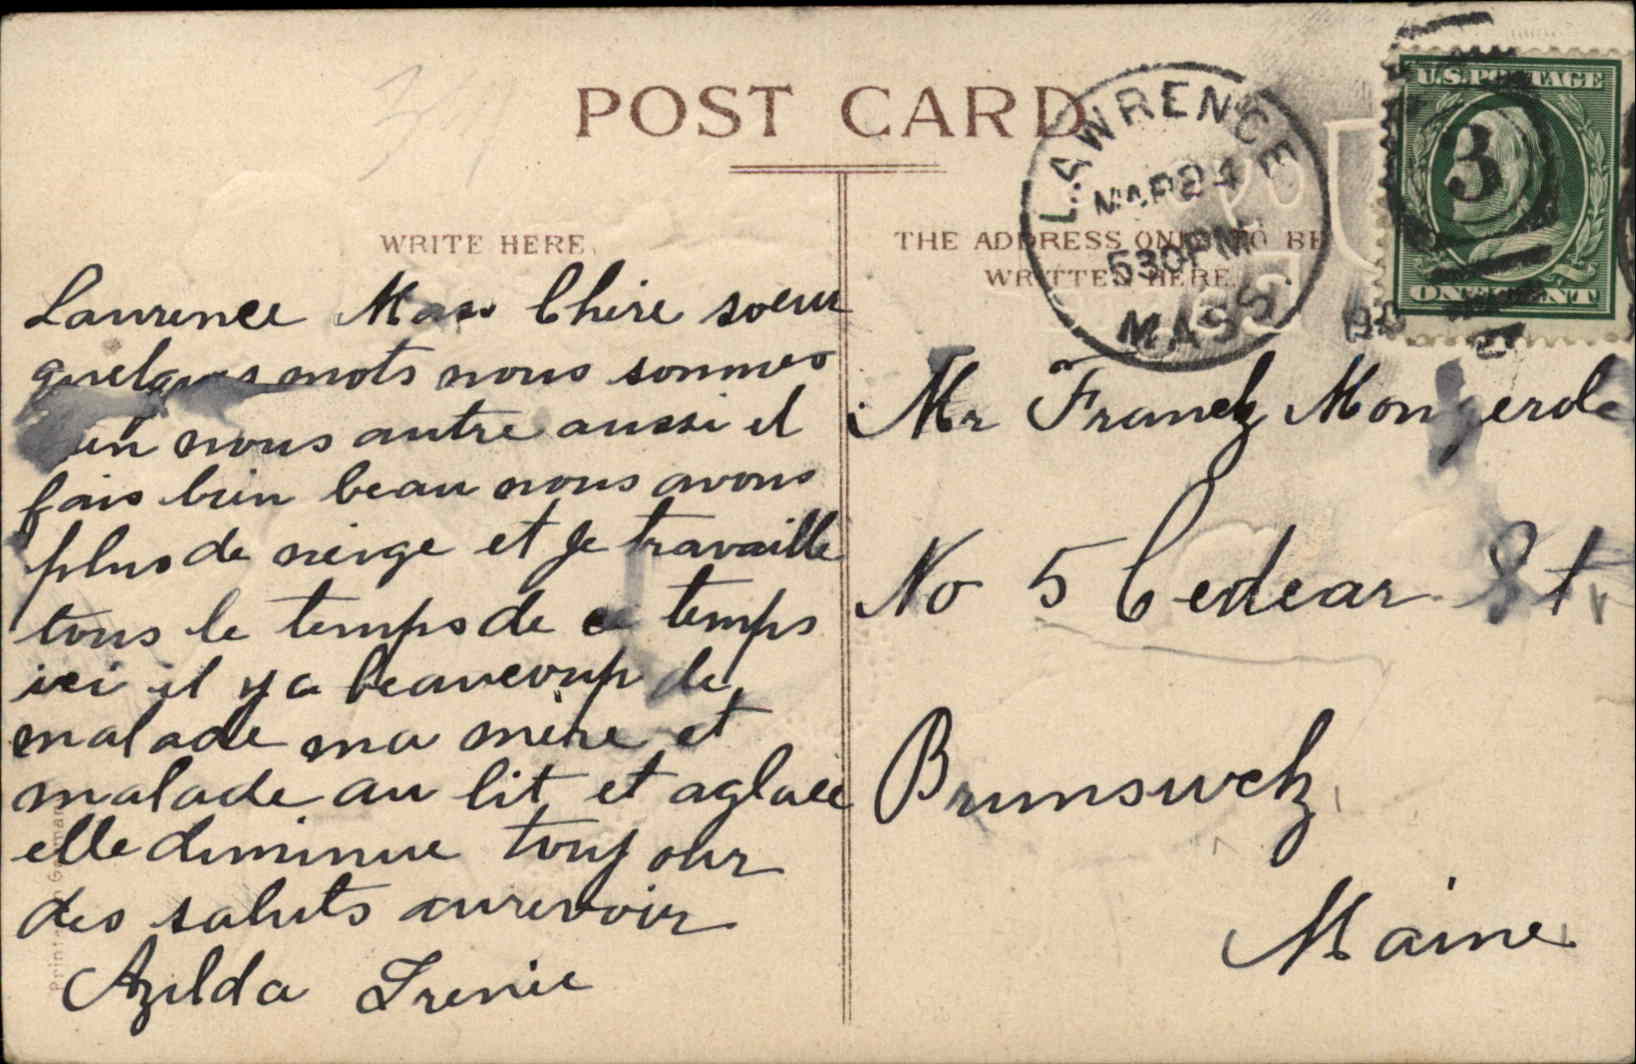 POST CARD
LAWRENCE
MAR 24
530 PM
MASS.
U.S. POSTAGE
3
ONE CENT
WRITE HERE.
THE ADDRESS ONLY TO BE
WRITTEN HERE.
Lawrence Mass Chère soeur
quelques mots nous sommes
nous autre aussi il
fais bien beau nous avons
plus de neige et Je travaille
tous le temps de ce temps
ici il y a beaucoup de
malade ma mère et
malade au lit et aglaee
elle diminue toujour
des saluts aurevoir
Azilda Irenie
Mr Franck Mongerde
No 5 Cedear St.
Brunswck
Maine
Printed in Germany